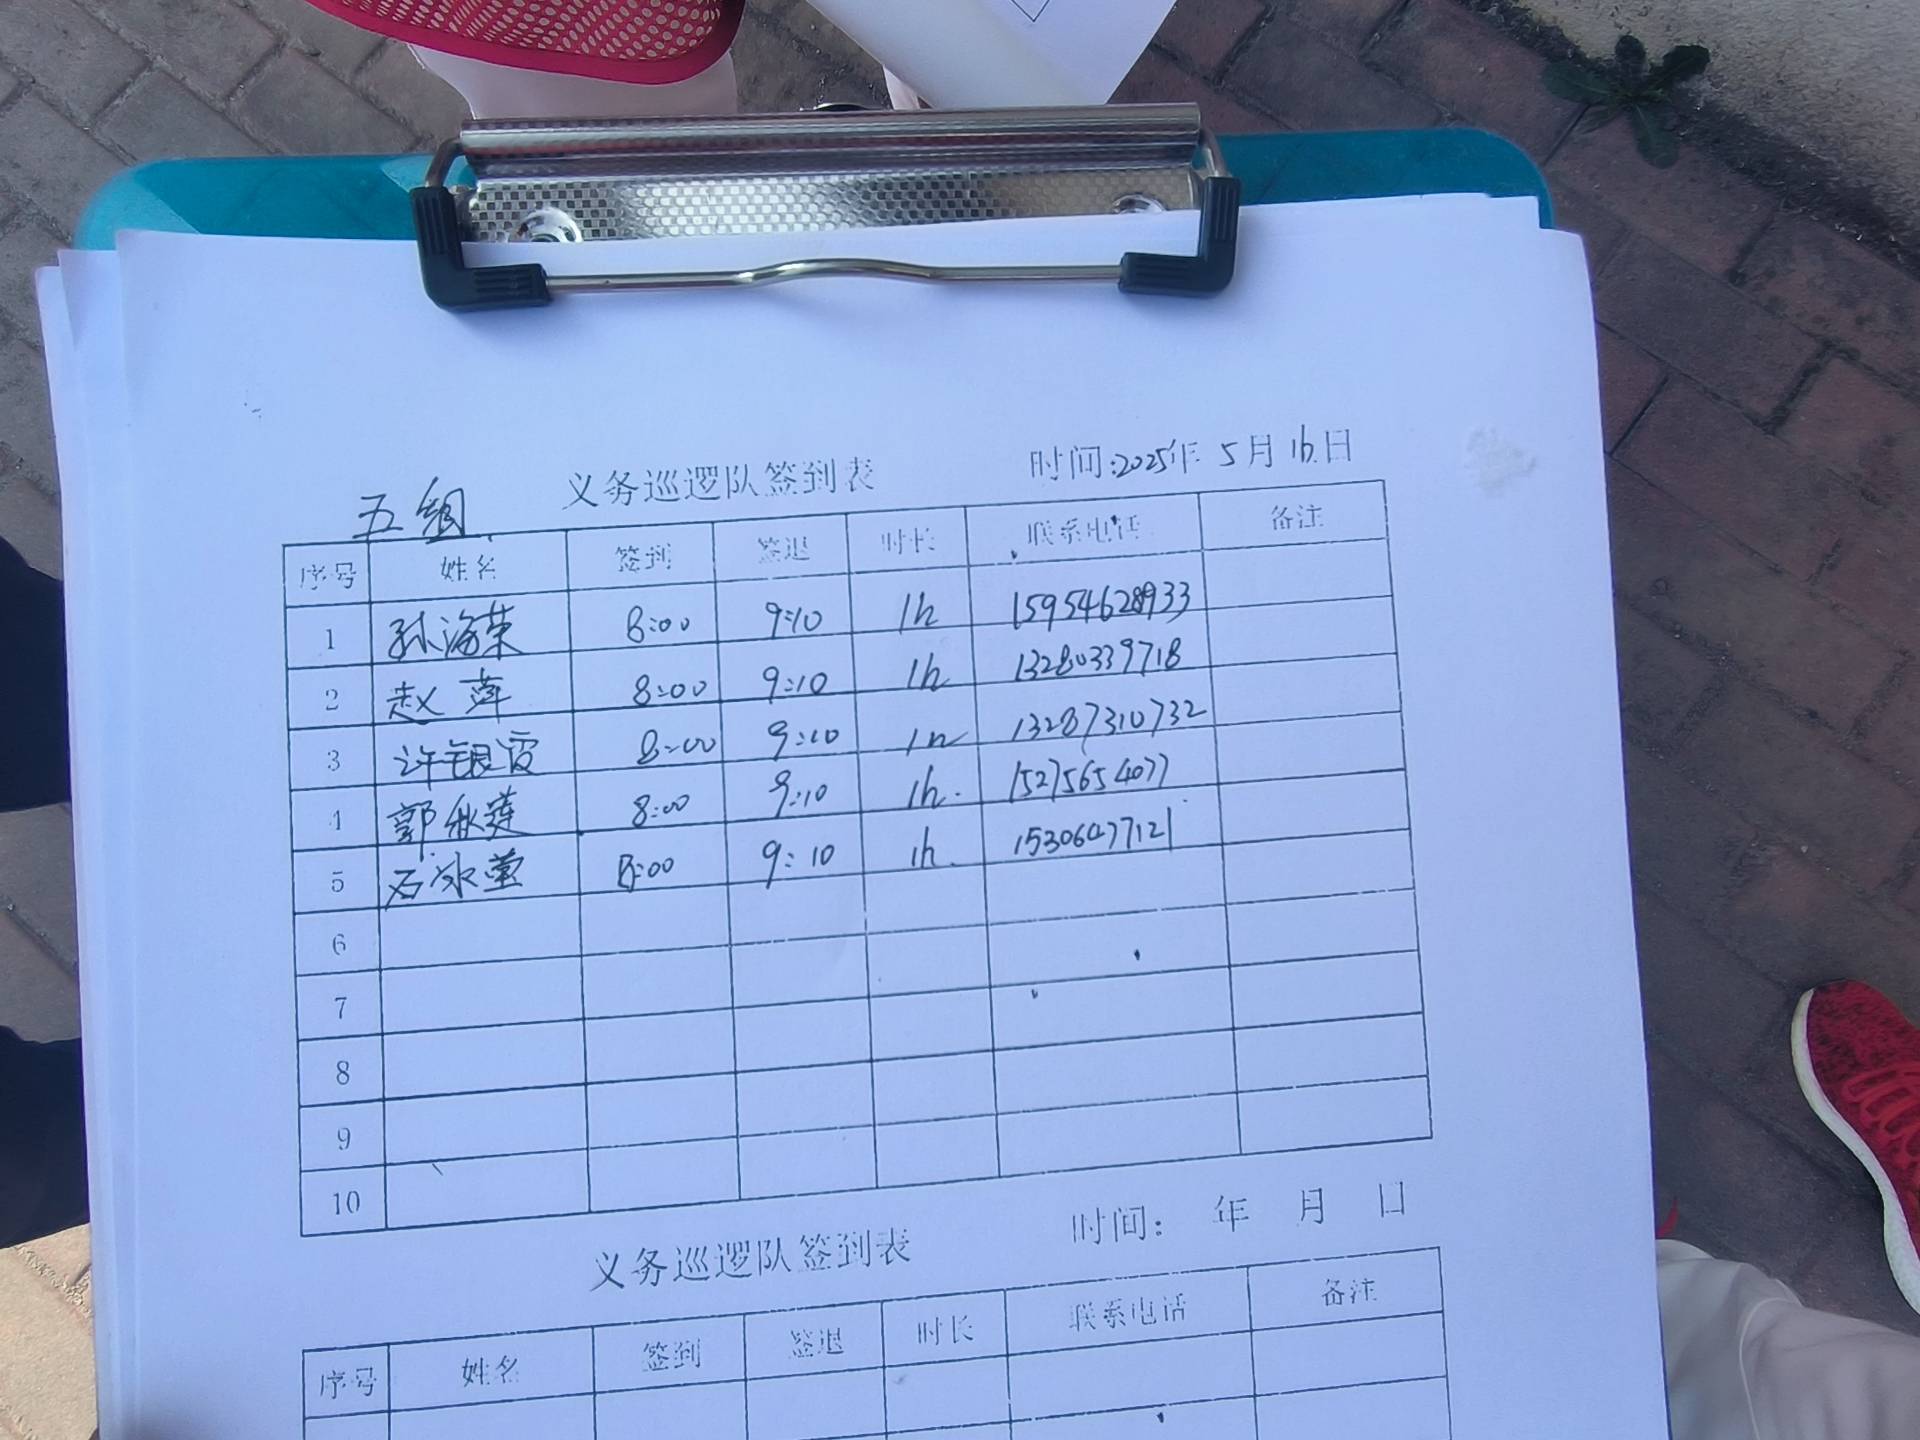 五组 义务巡逻队签到表 时间:2025年 5月 16日
序号 姓名 签到 签退 时长 联系电话 备注
1 孙海荣 8:00 9:10 1h 15954628933
2 赵萍 8:00 9:10 1h 13280339718
3 许银霞 8:00 9:10 1h 13287310732
4 郭秋莲 8:00 9:10 1h. 15275654077
5 石冰莹 8:00 9:10 1h. 15306477121
6
7
8
9
10
义务巡逻队签到表 时间: 年 月 日
序号 姓名 签到 签退 时长 联系电话 备注